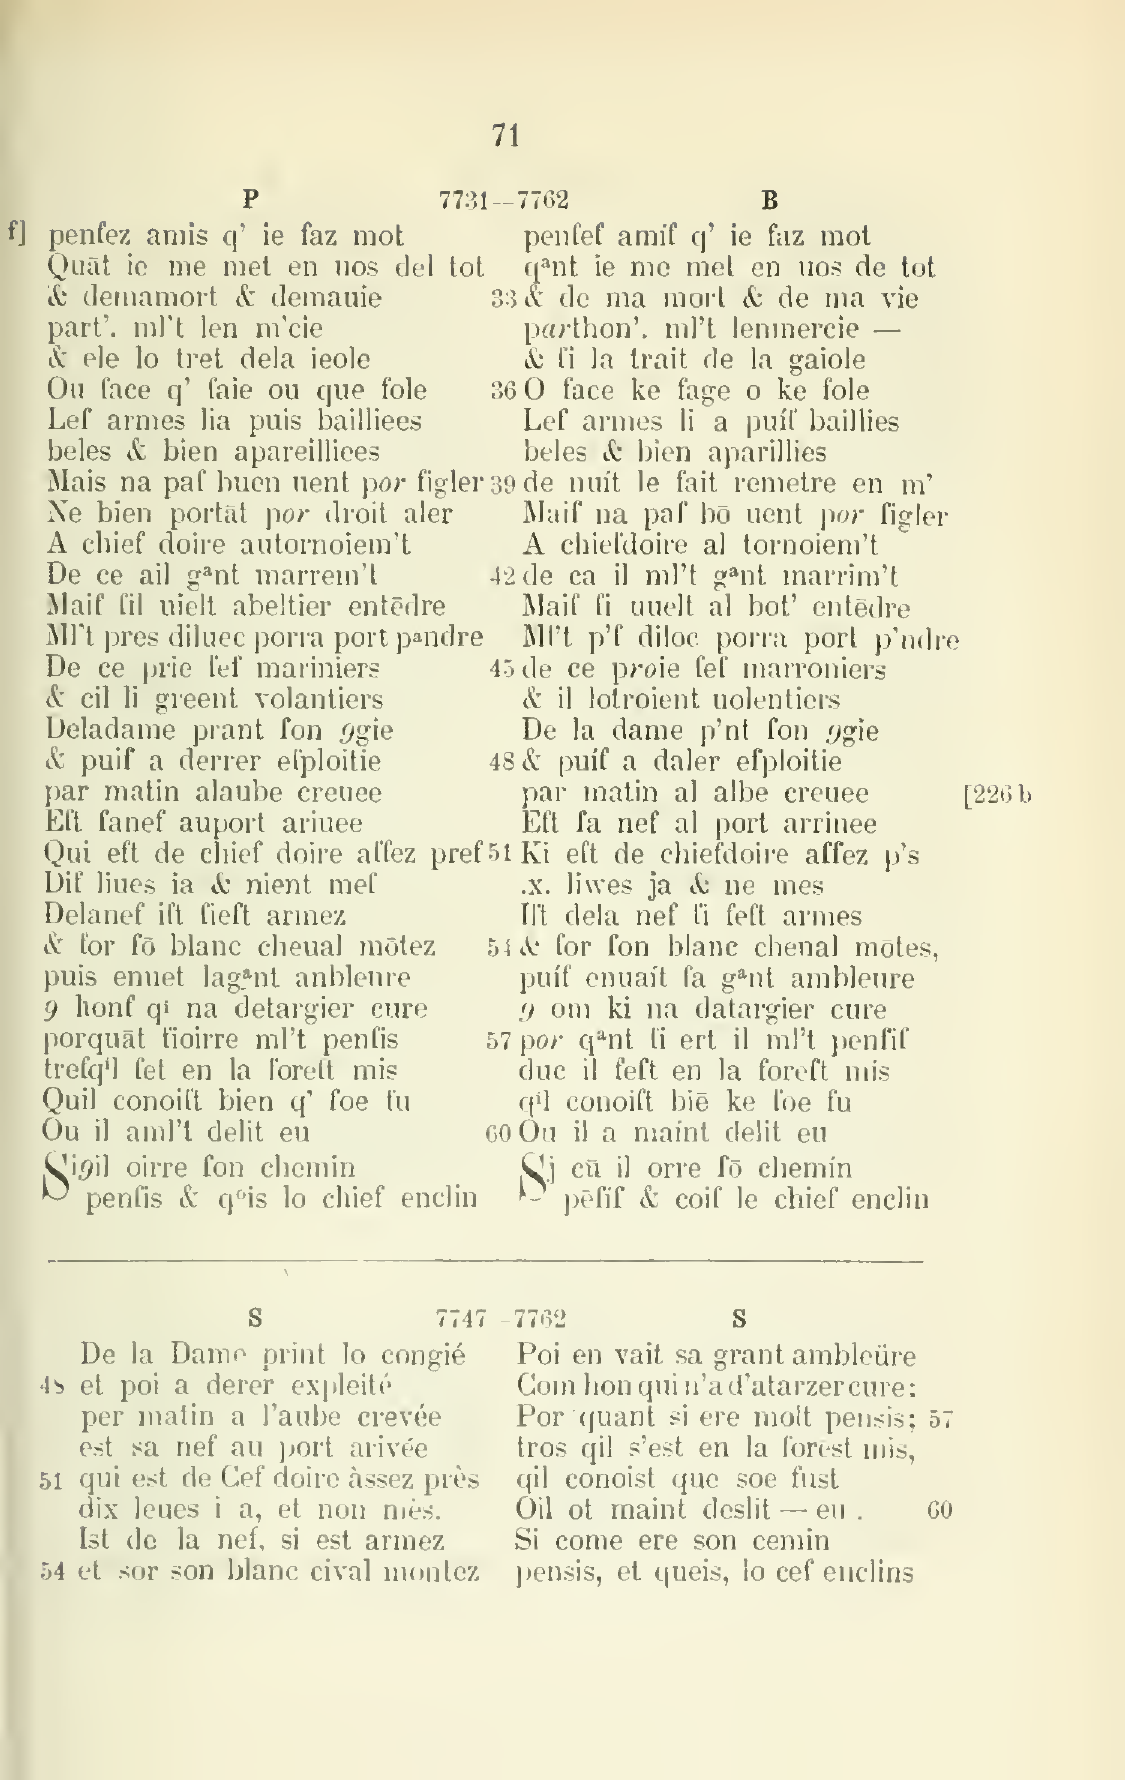 71
P 7731—7762 B
f] penſez amis q’ ie faz mot
Quāt ie me met en uos del tot
& demamort & demauie
part’. ml’t len m’cie
& ele lo tret dela ieole
Ou face q’ ſaie ou que fole
Leſ armes lia puis bailliees
beles & bien apareillices
Mais na paſ buen uent por ſigler
Ne bien portāt por droit aler
A chief doire autornoiem’t
De ce ail gᵃnt marrem’t
Maiſ ſil uielt abeltier entēdre
Ml’t pres diluec porra port pᵃndre
De ce prie ſeſ mariniers
& cil li greent volantiers
Deladame prant ſon ꝯgie
& puiſ a derrer eſploitie
par matin alaube creuee
Eſt ſaneſ auport ariuee
Qui eſt de chief doire aſſez preſ
Diſ liues ia & nient meſ
Delaneſ iſt ſieſt armez
& ſor ſō blanc cheual mōtez
puis enuet lagᵃnt anbleure
ꝯ honſ qⁱ na detargier cure
porquāt ſioirre ml’t penſis
treſqⁱl ſet en la foreſt mis
Quil conoiſt bien q’ ſoe fu
Ou il aml’t delit eu
Siꝯil oirre ſon chemin
penſis & qᵒis lo chief enclin
penſeſ amiſ q’ ie faz mot
qᵃnt ie me met en uos de tot
33 & de ma mort & de ma vie
parthon’. ml’t lenmercie —
& ſi la trait de la gaiole
36 O face ke ſage o ke fole
Leſ armes li a puiſ baillies
beles & bien aparillies
39 de nuit le fait remetre en m’
Maiſ na paſ bō uent por ſigler
A chieſdoire al tornoiem’t
42 de ca il ml’t gᵃnt marrim’t
Maiſ ſi uuelt al bot’ entēdre
Ml’t p’ſ diloc porra port p’ndre
45 de ce proie ſeſ marroniers
& il lotroient uolentiers
De la dame p’nt ſon ꝯgie
48 & puiſ a daler eſploitie
par matin al albe creuee [226 b
Eſt ſa nef al port arriuee
51 Ki eſt de chieſdoire aſſez p’s
.x. liwes ja & ne mes
Iſt dela nef ſi ſeſt armes
54 & ſor ſon blanc cheual mōtes,
puiſ enuait ſa gᵃnt ambleure
ꝯ om ki na datargier cure
57 por qᵃnt ſi ert il ml’t penſiſ
duc il ſeſt en la foreſt mis
qⁱl conoiſt biē ke ſoe fu
60 Ou il a maint delit eu
Sj cū il orre ſō chemin
pēſiſ & coiſ le chief enclin
S 7747—7762 S
De la Dame print lo congié
48 et poi a derer expleité
per matin a l’aube crevée
est sa nef au port arivée
51 qui est de Cef doire àssez près
dix leues i a, et non mès.
Ist de la nef, si est armez
54 et sor son blanc cival montez
Poi en vait sa grant ambleüre
Com hon qui n’a d’atarzer cure:
Por quant si ere molt pensis; 57
tros qil s’est en la forest mis,
qil conoist que soe fust
Oil ot maint deslit — eu . 60
Si come ere son cemin
pensis, et queis, lo cef enclins